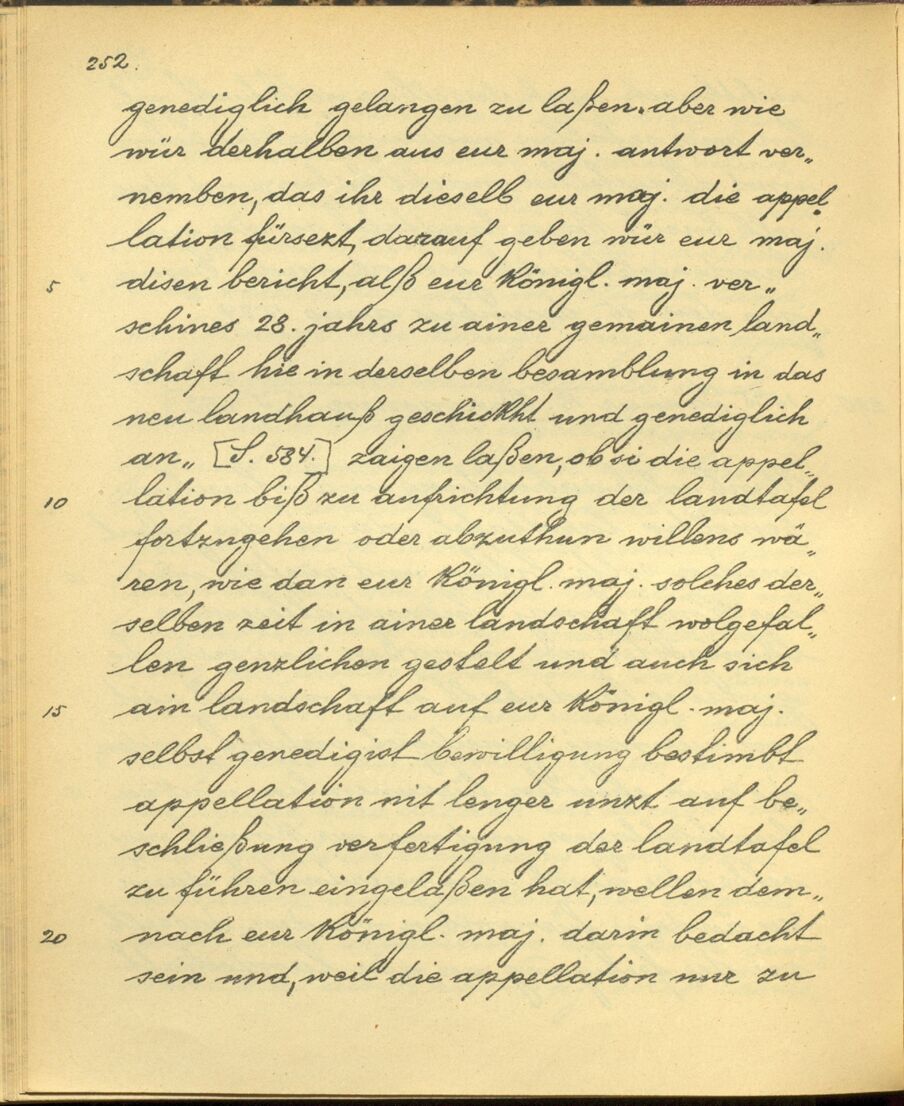 252.
genediglich gelangen zu laßen. aber wie
wür derhalben aus eur maj. antwort ver„
nemben, das ihr dieselb eur maj. die appel„
lation fürsezt, darauf geben wür eur maj.
5 disen bericht, alß eur königl. maj. ver„
schines 28. jahrs zu ainer gemainen land„
schaft hie in derselben besamblung in das
neu landhauß geschickht und genediglich
an„ [S. 584.] zaigen laßen, ob si die appel„
10 lation biß zu aufrichtung der landtafel
fortzugehen oder abzuthun willens wä„
ren, wie dan eur königl. maj. solches der„
selben zeit in ainer landschaft wolgefal„
len genzlichen gestelt und auch sich
15 ain landschaft auf eur königl. maj.
selbst genedigist bewilligung bestimbt
appellation nit lenger unzt auf be„
schließung verfertigung der landtafel
zu führen eingelaßen hat, wellen dem„
20 nach eur königl. maj. darin bedacht
sein und, weil die appellation nur zu